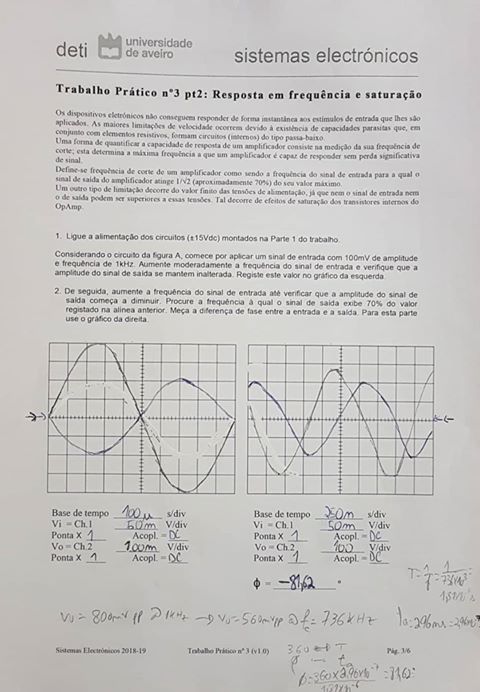 deti universidade de aveiro sistemas electrónicos
Trabalho Prático nº3 pt2: Resposta em frequência e saturação
Os dispositivos eletrónicos não conseguem responder de forma instantânea aos estímulos de entrada que lhes são
aplicados. As maiores limitações de velocidade ocorrem devido à existência de capacidades parasitas que, em
conjunto com elementos resistivos, formam circuitos (internos) do tipo passa-baixo.
Uma forma de quantificar a capacidade de resposta de um amplificador consiste na medição da sua frequência de
corte; esta determina a máxima frequência a que um amplificador é capaz de responder sem perda significativa
de sinal.
Define-se frequência de corte de um amplificador como sendo a frequência do sinal de entrada para a qual o
sinal de saída do amplificador atinge 1/√2 (aproximadamente 70%) do seu valor máximo.
Um outro tipo de limitação decorre do valor finito das tensões de alimentação, já que nem o sinal de entrada nem
o de saída podem ser superiores a essas tensões. Tal decorre de efeitos de saturação dos transistores internos do
OpAmp.
1. Ligue a alimentação dos circuitos (±15Vdc) montados na Parte 1 do trabalho.
Considerando o circuito da figura A, comece por aplicar um sinal de entrada com 100mV de amplitude
e frequência de 1kHz. Aumente moderadamente a frequência do sinal de entrada e verifique que a
amplitude do sinal de saída se mantem inalterada. Registe este valor no gráfico da esquerda.
2. De seguida, aumente a frequência do sinal de entrada até verificar que a amplitude do sinal de
saída começa a diminuir. Procure a frequência à qual o sinal de saída exibe 70% do valor
registado na alínea anterior. Meça a diferença de fase entre a entrada e a saída. Para esta parte
use o gráfico da direita.
Base de tempo 100μ s/div
Vi = Ch.1 50m V/div
Ponta X 1 Acopl. = DC
Vo = Ch.2 100m V/div
Ponta X 1 Acopl. = DC
Base de tempo 250m s/div
Vi = Ch.1 50m V/div
Ponta X 1 Acopl. = DC
Vo = Ch.2 100 V/div
Ponta X 1 Acopl. = DC
ϕ = -81,62 °
Vo = 800mV pp @ 1kHz → Vo = 560mVpp @ fc = 736kHz
Sistemas Electrónicos 2018-19 Trabalho Prático nº 3 (v1.0) Pág. 3/6